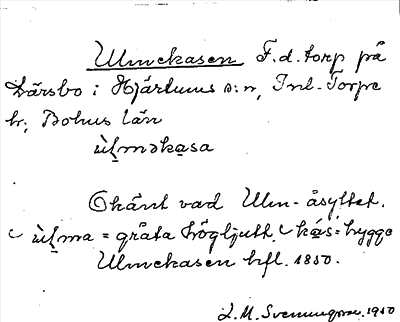 Ulmekasen F.d. torp på
Därsbo i Hjärtums s:n, Inl. Torpe
hr, Bohus län
ùl̥məka̱sa
Okänt vad Ulm- åsyftet.
ùl̥ma = gråta högljutt. ka̱s = hygge
Ulmekasen hfl. 1850.
L. M. Svenungsson. 1910